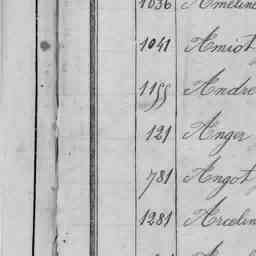 1036 Ameline
1041 Amiot
1155 Andre
121 Anger
781 Angot
1281 Arcelin